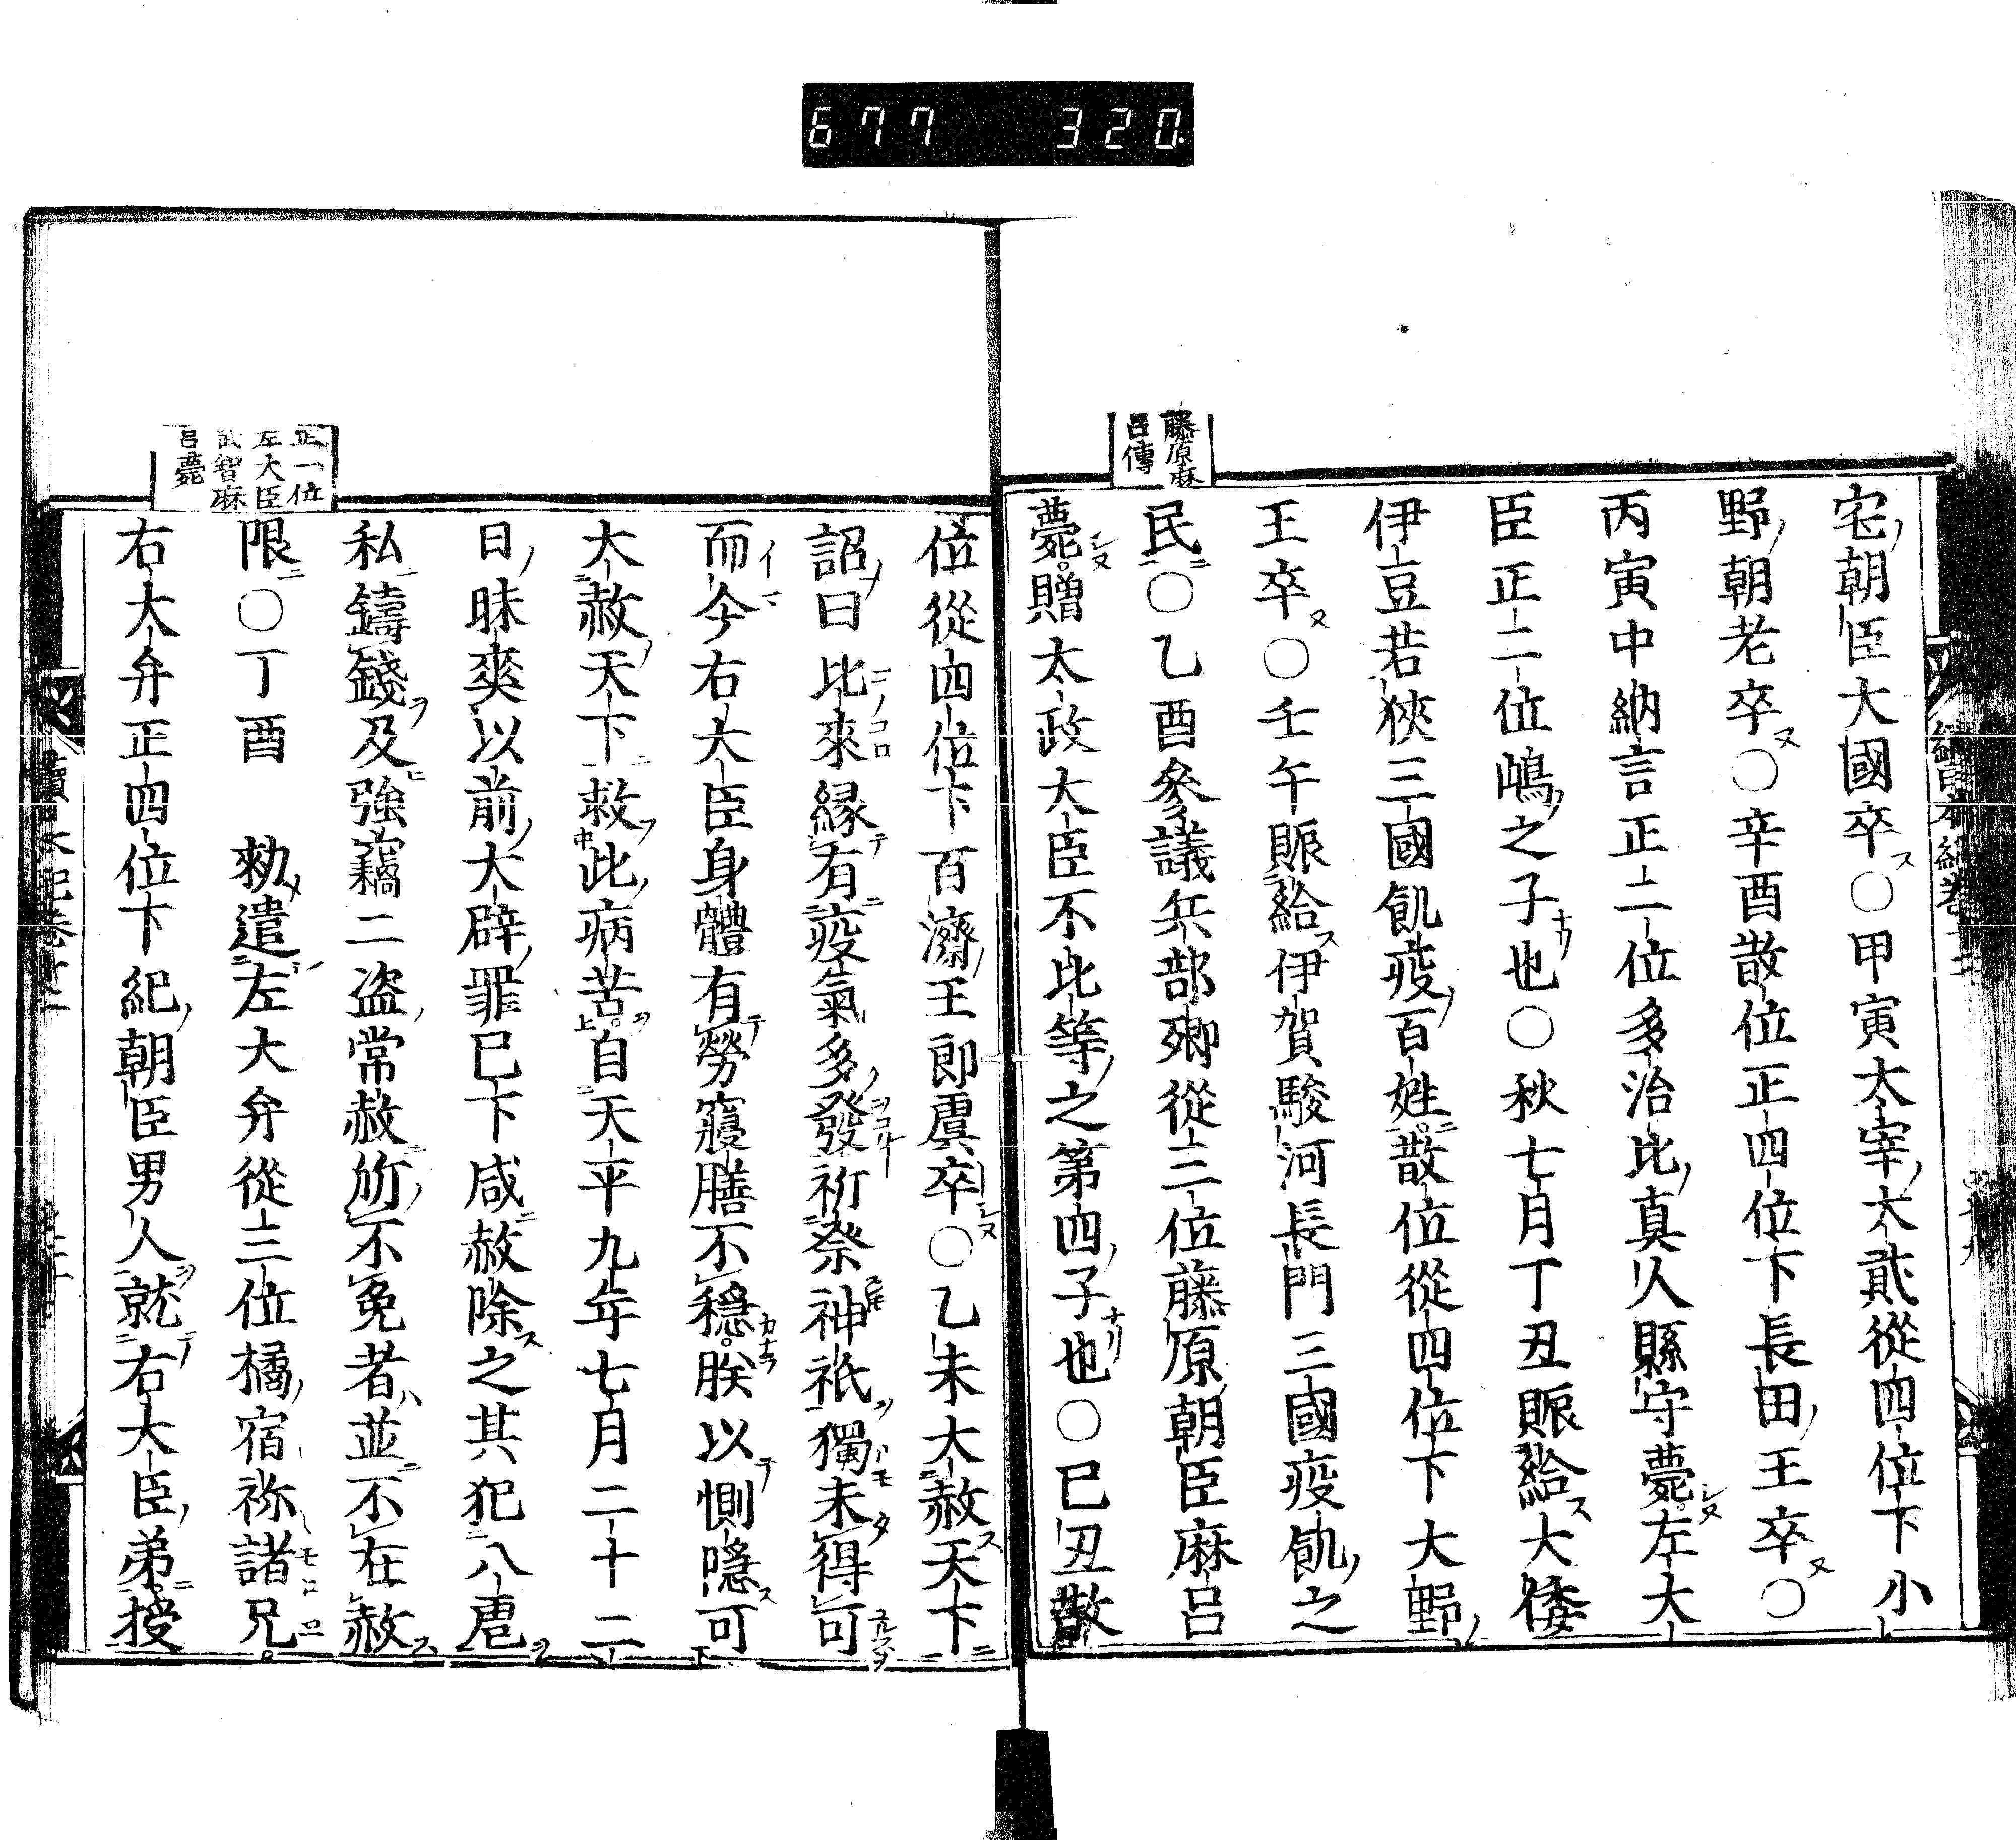 677 320
藤原麻
呂傳
宅朝臣大國卒○甲寅太宰大貳從四位下小
野朝老卒○辛酉散位正四位下長田王卒○
丙寅中納言正二位多治比真人縣守薨左大
臣正二位嶋之子也○秋七月丁丑賑給大倭
伊豆若狹三國飢疫百姓散位從四位下大野
王卒○壬午賑給伊賀駿河長門三國疫飢之
民○乙酉參議兵部卿從三位藤原朝臣麻呂
薨贈太政大臣不比等之第四子也○巳丑散
正一位
左大臣
武智麻
呂薨
位從四位下百濟王郎虞卒○乙未大赦天下
詔曰比來縁有疫氣多發祈祭神祇獨未得可
而今右大臣身體有勞寢膳不穩朕以惻隱可
大赦天下救此病苦自天平九年七月二十二
日昧爽以前大辟罪巳下咸赦除之其犯八虐
私鑄錢及強竊二盗常赦所不免者並不在赦
限○丁酉 勅遣左大弁從三位橘宿祢諸兄
右大弁正四位下紀朝臣男人就右大臣弟授